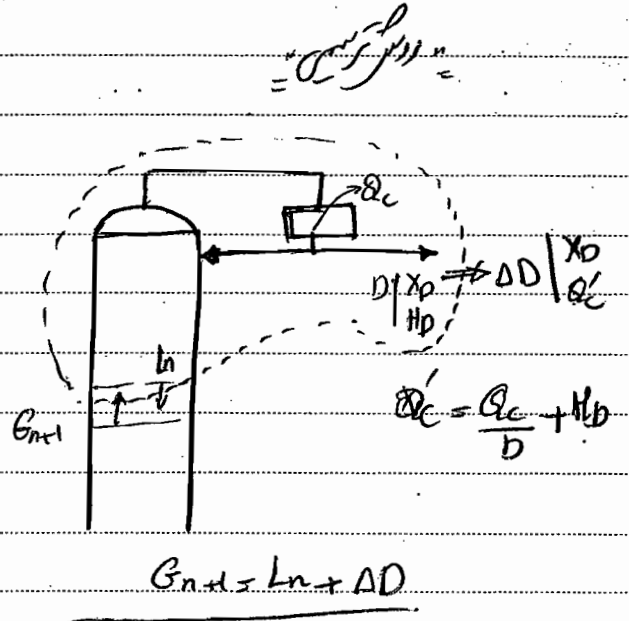 Qc
D | XD
HD
⇒ ΔD | XD
Q'c
Ln
Gn+1
Q'c = Qc/D + HD
Gn+1 = Ln + ΔD